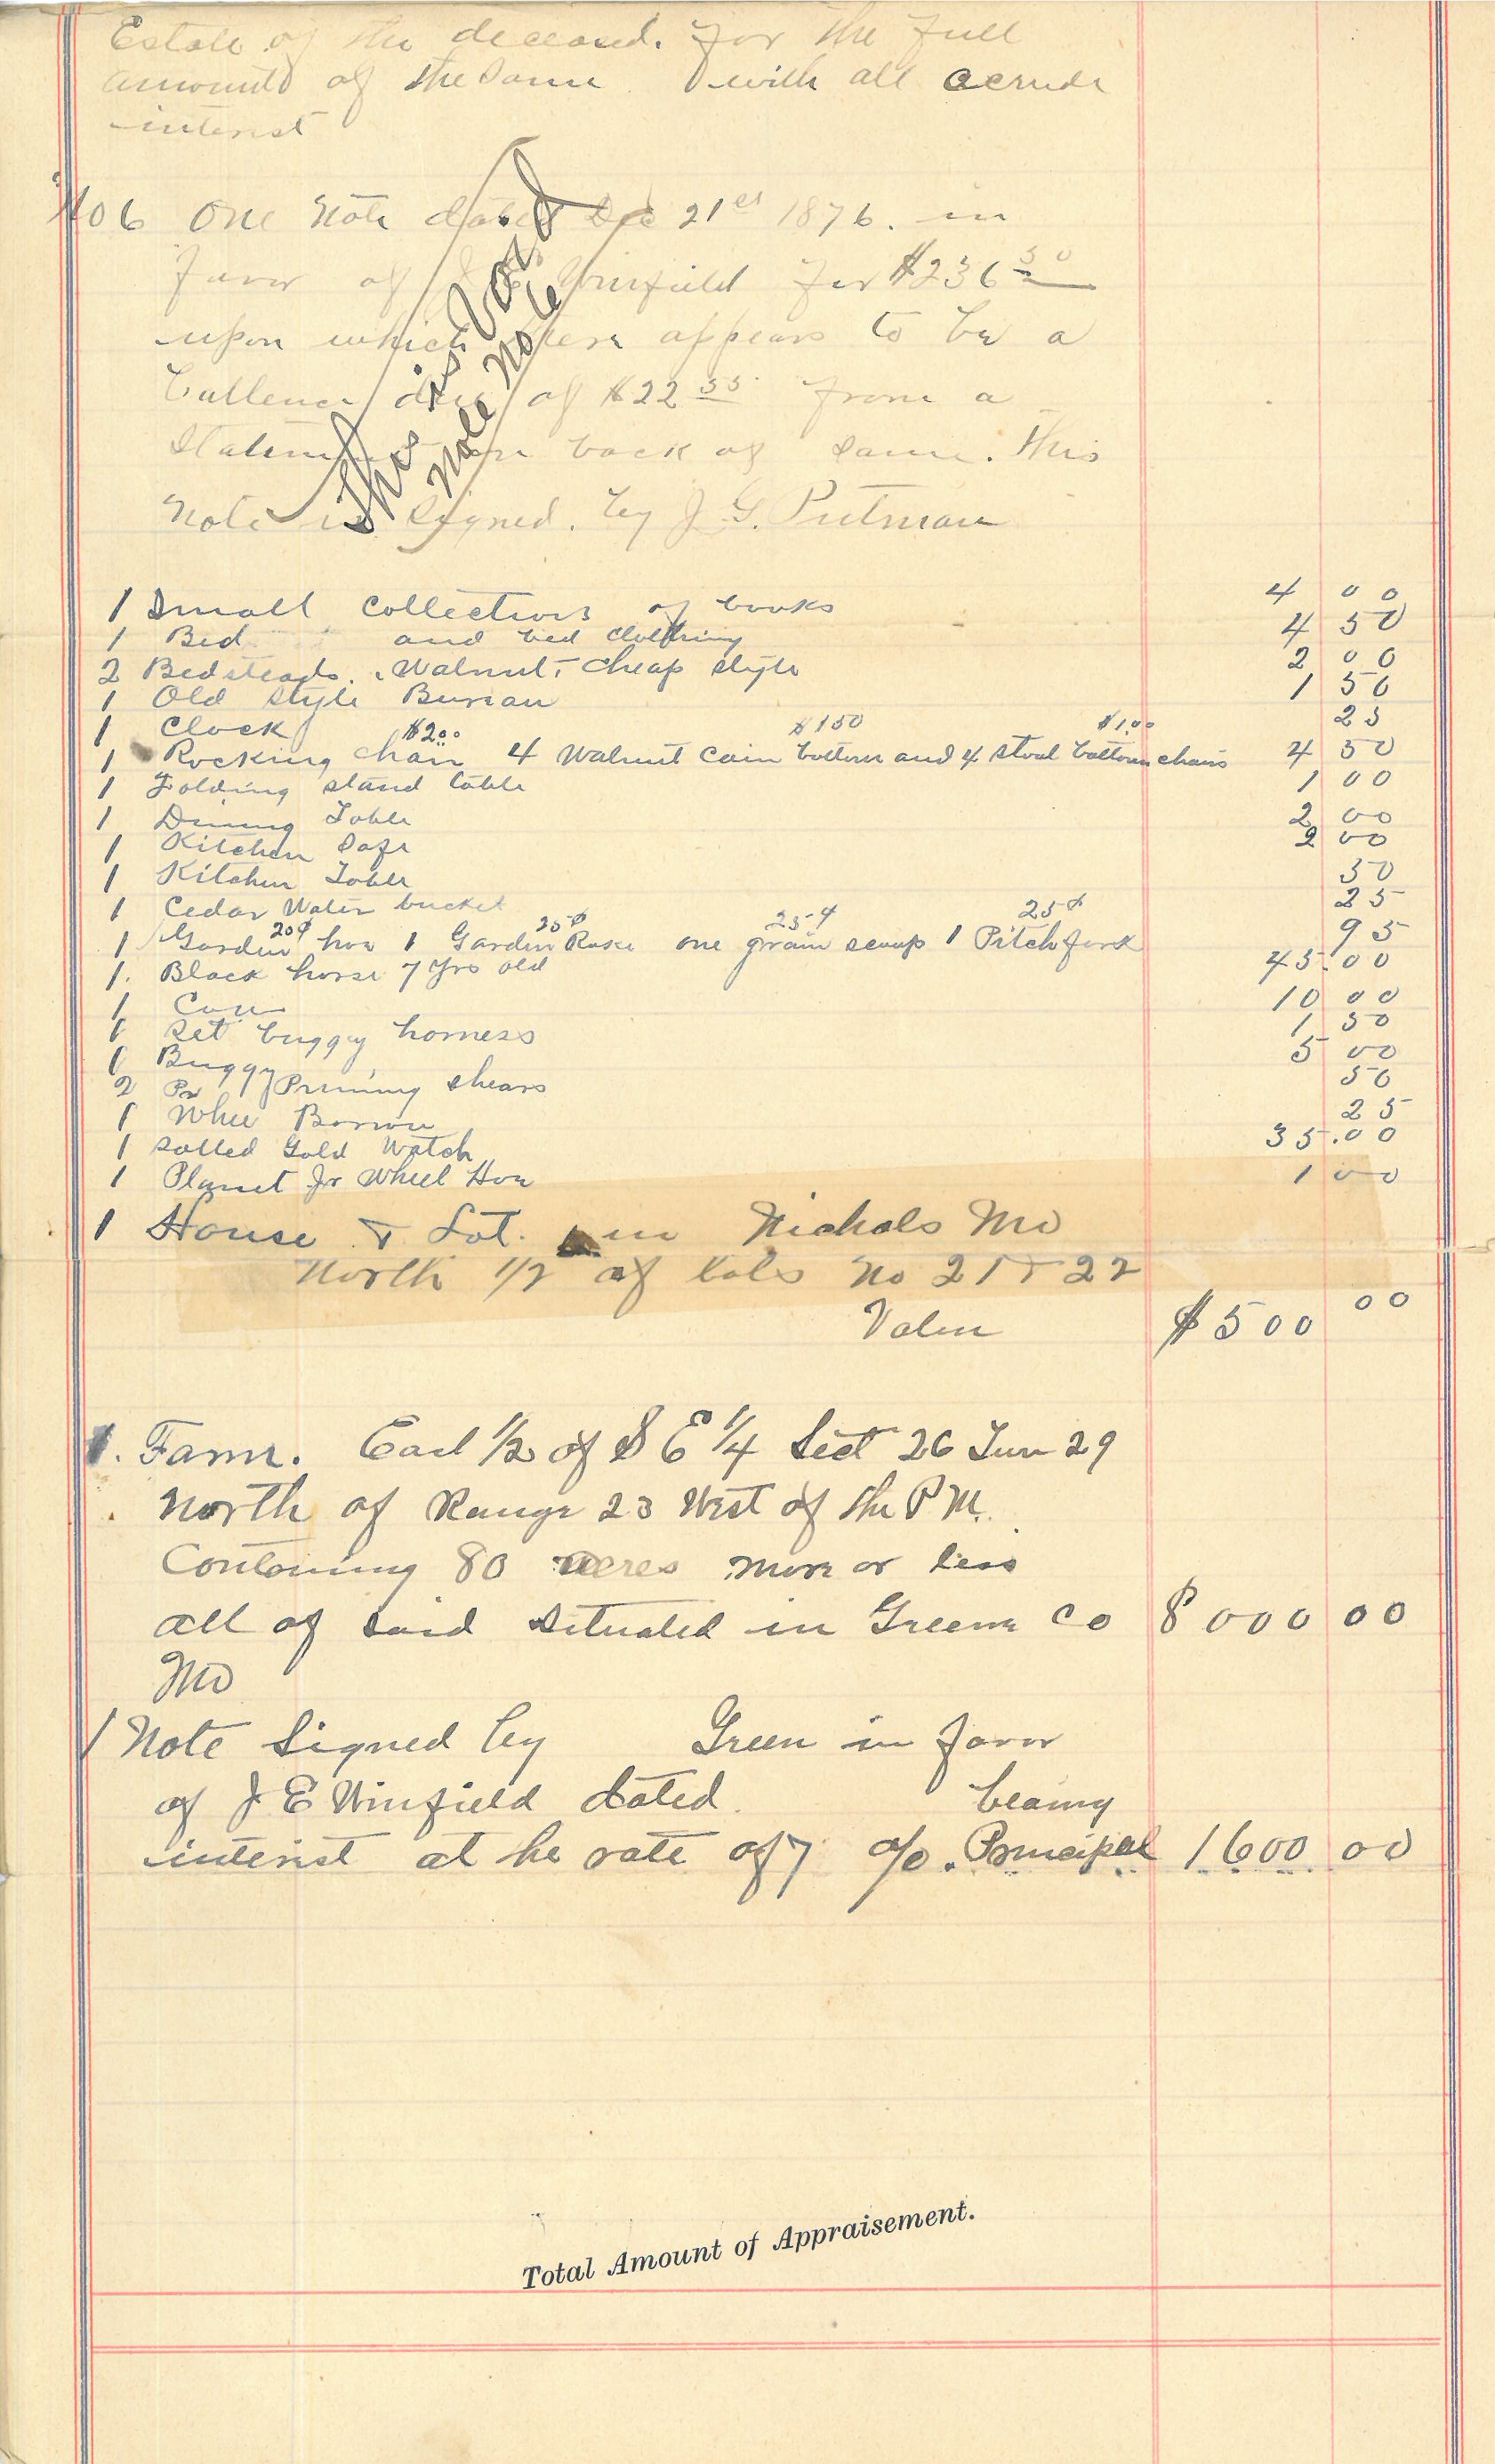 Estate of the deceased. for the full
amounts of the same with all acrude
interest
No 6 One Note dated Dec 21st 1876. in
favor of Winfield for $236 50
upon which there appears to be a
ballence due of $22 55 from a
Statement on back of same. This
Note is signed. by J. G. Putman
This is Void
Note No 6
1 Small collection of books 4 00
1 Bed and bed clothing 4 50
2 Bedsteads. Walnut, cheap style 2 00
1 Old style Bureau 1 50
1 Clock 25
$2.00 $1 50 $1.00
1 Rocking chair 4 Walnut Cain bottom and 4 stool bottom chairs 4 50
1 Folding stand table 1 00
1 Dining Table 2 00
1 Kitchen Safe 2 00
1 Kitchen Table 50
1 Cedar Water bucket 25
20¢ 25¢ 25¢ 25¢
1 Garden hoe 1 Garden Rake one grain scoup 1 Pitch fork 95
1. Black horse 7 yrs old 45.00
1 Cow 10 00
1 Set buggy harness 1 50
1 Buggy 5 00
2 Pr Pruning shears 50
1 Whee Barrow 25
1 Solled Gold Watch 35.00
1 Planet Jr Wheel Hoe 1 00
1 House & Lot. in Nichols Mo
North 1/2 of lots No 21 & 22
Value $500 00
1. Farm. East 1/2 of S E 1/4 Sect 26 Twn 29
North of Range 23 West of the P M.
Containing 80 acres more or less
all of said situated in Greene Co 8000 00
Mo
1 Note Signed by Green in favor
of J E Winfield dated bearing
interest at he rate of 7 %. Principal 1600 00
Total Amount of Appraisement.